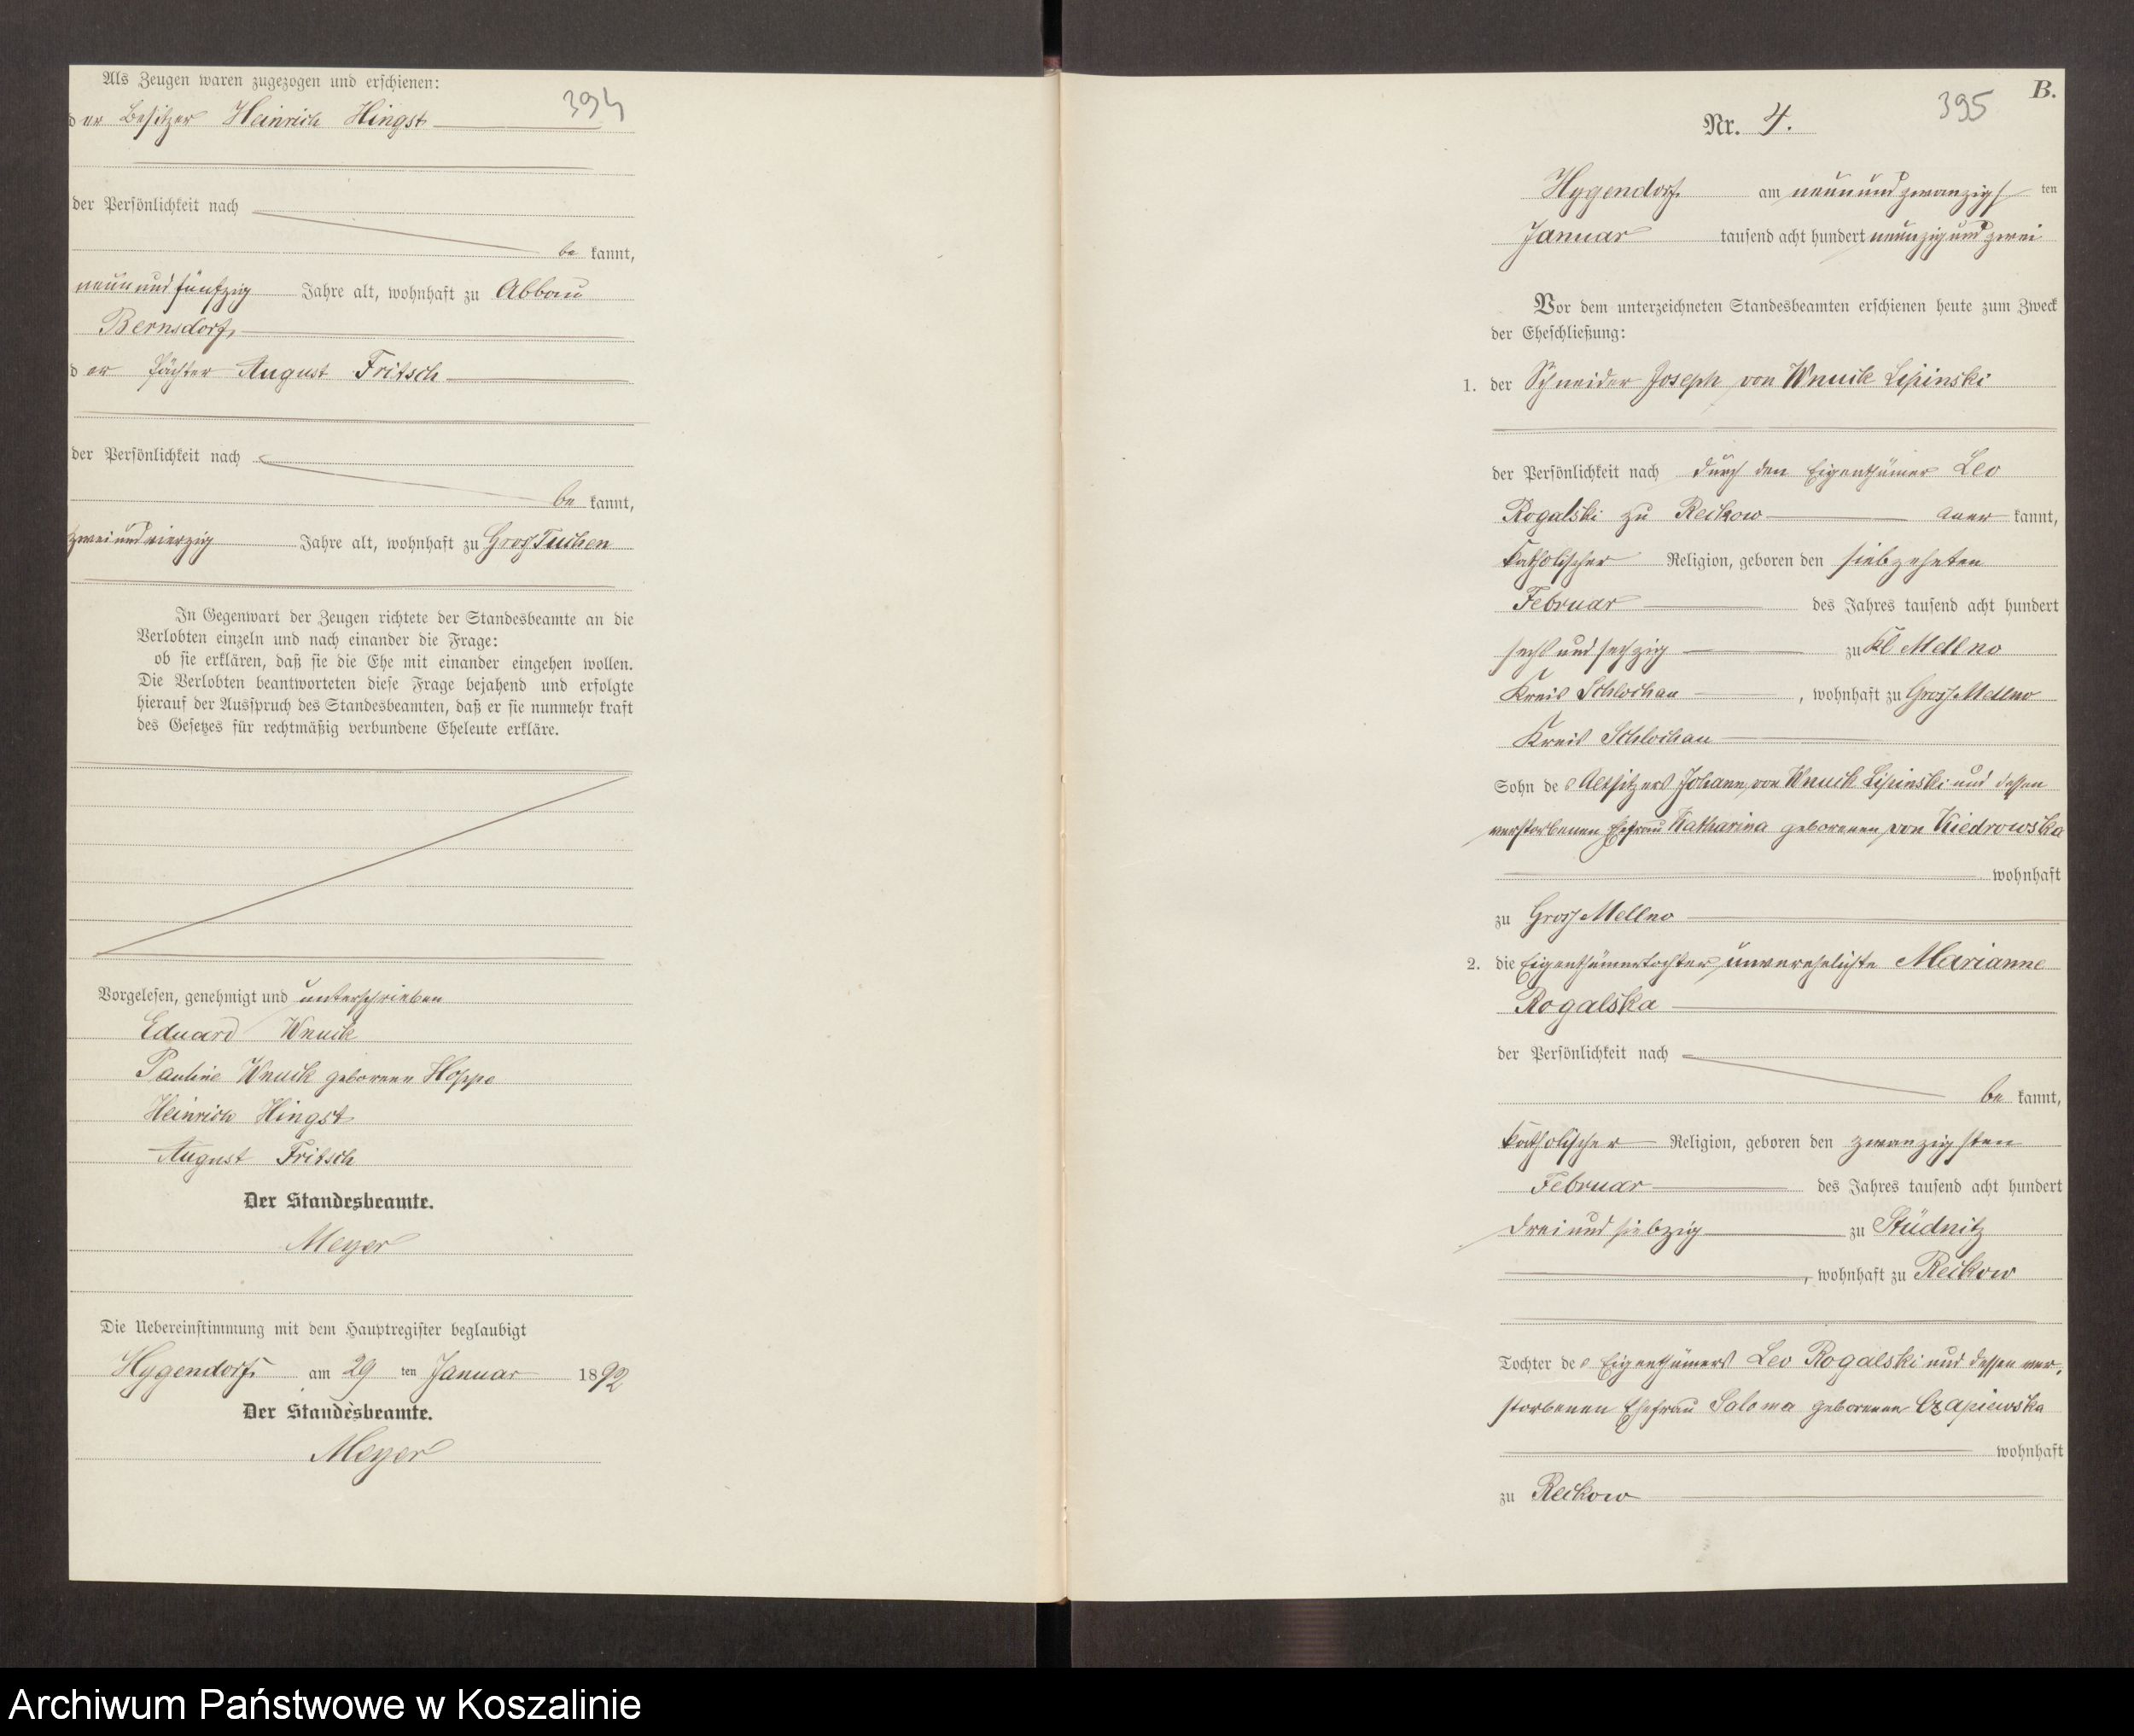 Als Zeugen waren zugezogen und erschienen:
394
der Besitzer Heinrich Hingst
der Persönlichkeit nach
be kannt,
neunundfünfzig Jahre alt, wohnhaft zu Abbau
Bernsdorf,
der Pächter August Fritsch
der Persönlichkeit nach
be kannt,
zweiundvierzig Jahre alt, wohnhaft zu Gross Tuchen
In Gegenwart der Zeugen richtete der Standesbeamte an die
Verlobten einzeln und nach einander die Frage:
ob sie erklären, daß sie die Ehe mit einander eingehen wollen.
Die Verlobten beantworteten diese Frage bejahend und erfolgte
hierauf der Ausspruch des Standesbeamten, daß er sie nunmehr kraft
des Gesetzes für rechtmäßig verbundene Eheleute erkläre.
Vorgelesen, genehmigt und unterschrieben
Eduard Wnuck
Pauline Wnuck geborene Hoppe
Heinrich Hingst
August Fritsch
Der Standesbeamte.
Meyer
Die Uebereinstimmung mit dem Hauptregister beglaubigt
Hygendorf am 29 ten Januar 1892
Der Standesbeamte.
Meyer
B.
395
Nr. 4.
Hygendorf am neunundzwanzigs ten
Januar tausend acht hundert neunzig und zwei
Vor dem unterzeichneten Standesbeamten erschienen heute zum Zweck
der Eheschließung:
1. der Schneider Joseph von Wnuck Lipinski
der Persönlichkeit nach durch den Eigenthümer Leo
Rogalski zu Reckow aner kannt,
katholischer Religion, geboren den siebzehnten
Februar des Jahres tausend acht hundert
sechs und sechzig zu Kl Mellno
Kreis Schlochau, wohnhaft zu Gross Mellno
Kreis Schlochau
Sohn des Altsitzers Johann von Wnuck Lipinski und dessen
verstorbenen Ehefrau Katharina geborenen von Kiedrowska
wohnhaft
zu Gross Mellno
2. die Eigenthümertochter, unverehelichte Marianne
Rogalska
der Persönlichkeit nach
be kannt,
katholischer Religion, geboren den zwanzigsten
Februar des Jahres tausend acht hundert
drei und siebzig zu Stüdnitz
, wohnhaft zu Reckow
Tochter des Eigenthümers Leo Rogalski und dessen ver-
storbenen Ehefrau Saloma geborenen Czapiewska
wohnhaft
zu Reckow
Archiwum Państwowe w Koszalinie